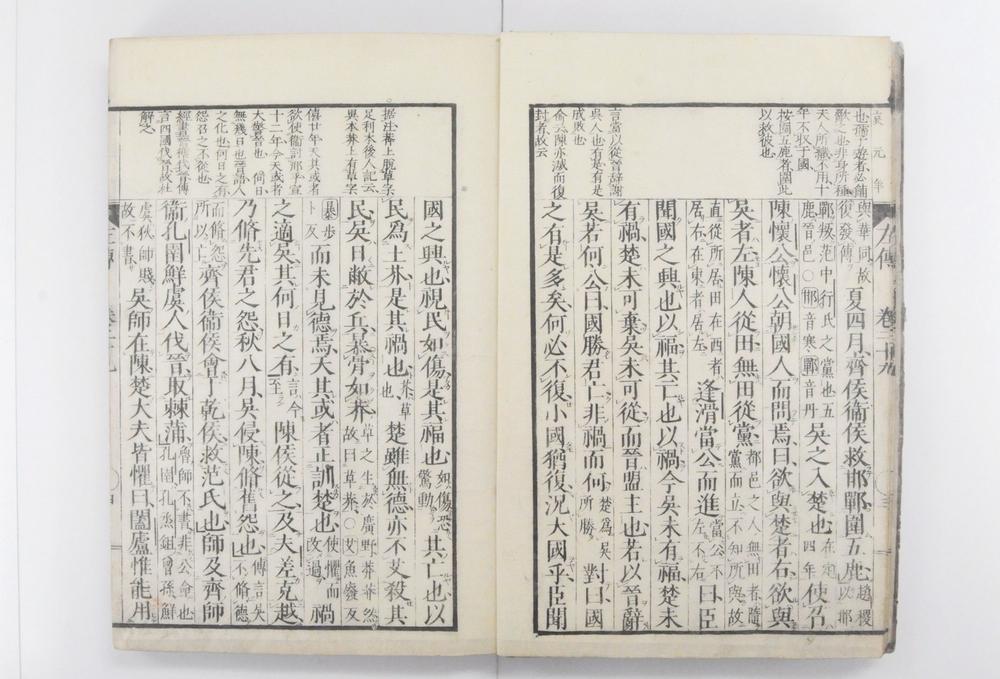 哀元年
也孺子遊者必餔
歠之也非身所種
天人所纖不用十
年不收于國
按圍五鹿者圍此
以救彼也
言當以從晉辭謝
吳人也有楚有是
成敗也
僉云陳亦滅而復
封者故云
與華同故復發傳夏四月齊侯衞侯救邯鄲圍五鹿趙稷以邯
鄲叛范中行氏之黨也五鹿晉邑○邯音寒鄲音丹吳之入楚也在定四年使召
陳懷公懷公朝國人而問焉曰欲與楚者右欲與
吳者左陳人從田無田從黨都邑之人無田者隨黨而立不知所與故
直從所居田在西者居右在東者居左逢滑當公而進當公不左不右曰臣
聞國之興也以福其亡也以禍今吳未有福楚未
有禍楚未可棄吳未可從而晉盟主也若以晉辭
吳若何公曰國勝君亡非禍而何楚爲吳所勝對曰國
之有是多矣何必不復小國猶復況大國乎臣聞
左傳 卷二十九
据注莽上脫草字
足利本後人記云
異本莽上有草字
僖廿年天其或者
欲使衞討邢乎宣
十二年今天或者
大警晉也 何日
無幾日也晉語人
之化也何日之有
怨召之不從也
解之
國之興也視民如傷是其福也如傷恐驚動其亡也以
民爲土芥是其禍也芥草也楚雖無德亦不艾殺其
民吳日敝於兵暴骨如莽草之生於廣野莽莽然故曰草莽○艾魚廢反
暴步卜反而未見德焉天其或者正訓楚也使懼而改過禍
之適吳其何日之有言今至陳侯從之及夫差克越
乃脩先君之怨秋八月吳侵陳脩舊怨也傳言吳不脩德
而脩怨所以亡齊侯衞侯會于乾侯救范氏也師及齊師
衞孔圉鮮虞人伐晉取棘蒲魯師不書非公命也孔圉孔烝鉏曾孫鮮
虞狄師賤故不書吳師在陳楚大夫皆懼曰闔廬惟能用